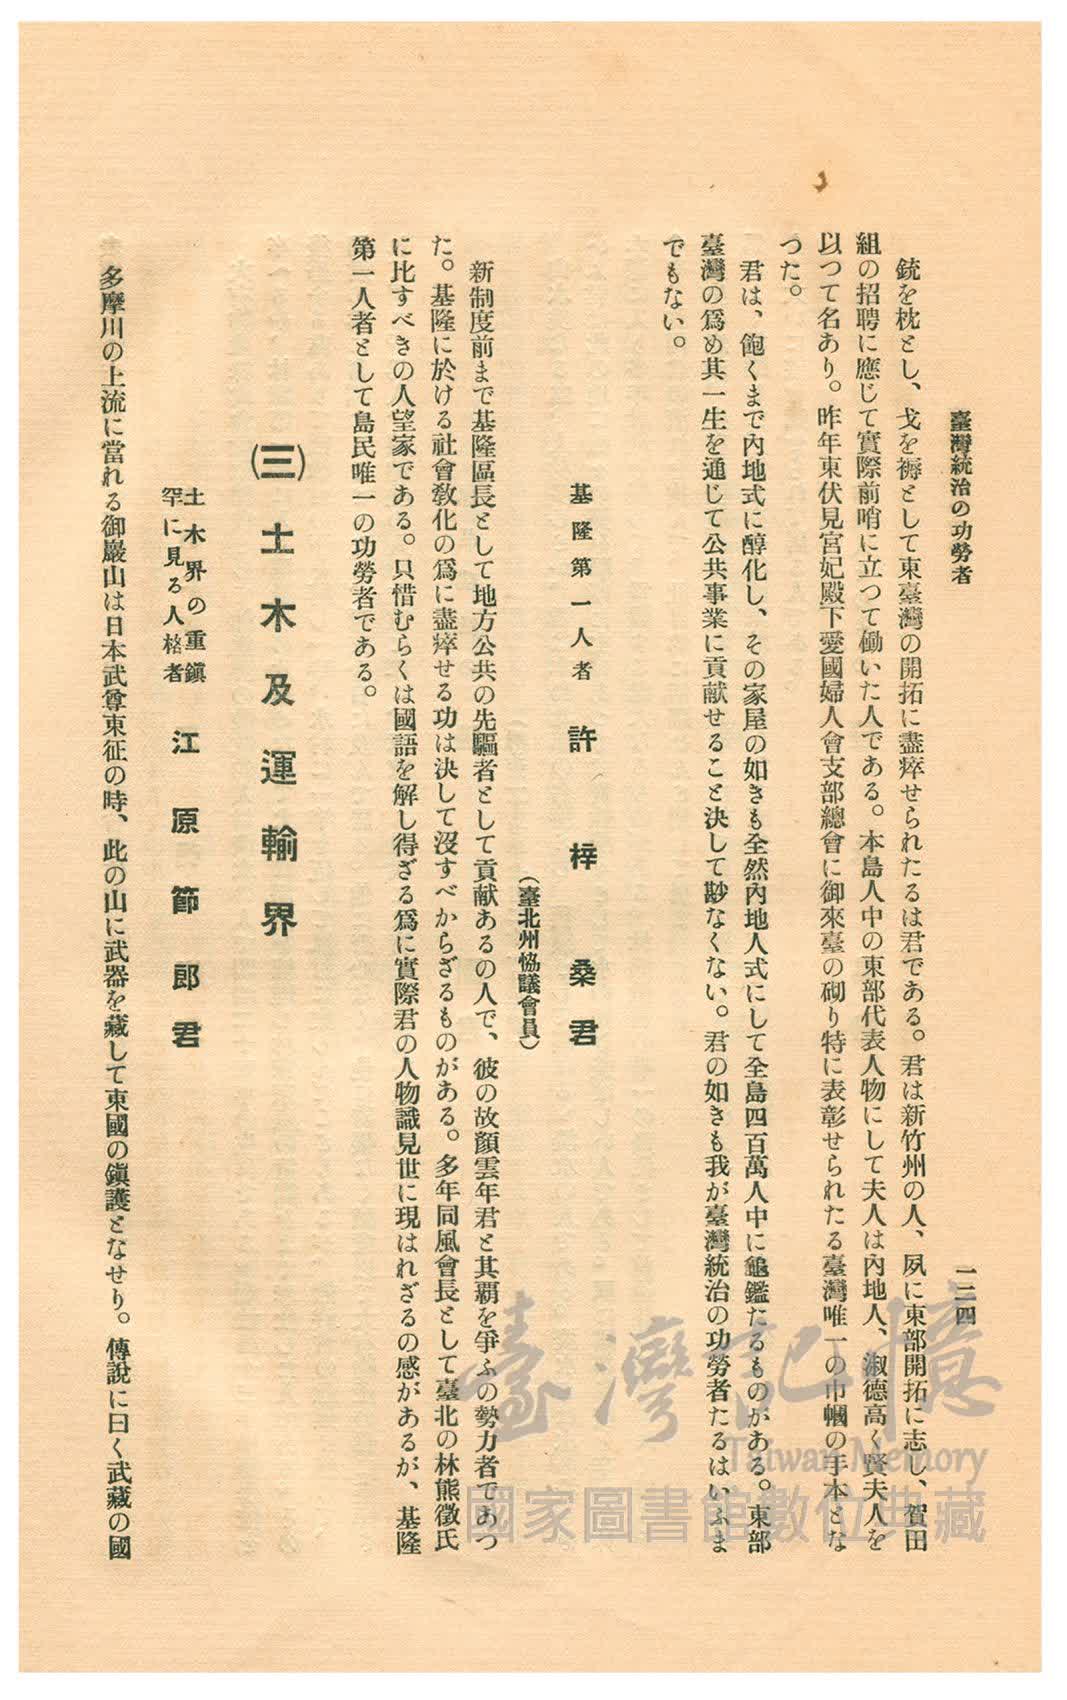 臺灣統治の功勞者
一三四
銃を枕とし、戈を褥として東臺灣の開拓に盡瘁せられたるは君である。君は新竹州の人、夙に東部開拓に志し、賀田
組の招聘に應じて實際前哨に立つて働いた人である。本島人中の東部代表人物にして夫人は內地人、淑德高く賢夫人を
以つて名あり。昨年東伏見宮妃殿下愛國婦人會支部總會に御來臺の砌り特に表彰せられたる臺灣唯一の巾幗の手本とな
つた。
君は、飽くまで內地式に醇化し、その家屋の如きも全然內地人式にして全島四百萬人中に龜鑑たるものがある。東部
臺灣の爲め其一生を通じて公共事業に貢献せること決して尠なくない。君の如きも我が臺灣統治の功勞者たるはいふま
でもない。
基隆第一人者 許梓桑君
(臺北州恊議會員)
新制度前まで基隆區長として地方公共の先驅者として貢献あるの人で、彼の故顏雲年君と其覇を爭ふの勢力者であつ
た。基隆に於ける社會敎化の爲に盡瘁せる功は決して沒すべからざるものがある。多年同風會長として臺北の林熊徵氏
に比すべきの人望家である。只惜むらくは國語を解し得ざる爲に實際君の人物識見世に現はれざるの感があるが、基隆
第一人者として島民唯一の功勞者である。
(三)土木及運輸界
土木界の重鎭
罕に見る人格者
江原節郎君
多摩川の上流に當れる御嚴山は日本武尊東征の時、此の山に武器を藏して東國の鎭護となせり。傳說に曰く武藏の國
臺灣記憶
Taiwan Memory
國家圖書館數位典藏